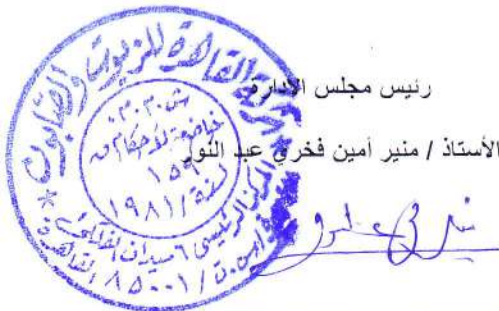 رئيس مجلس الإدارة
الأستاذ / منير أمين فخري عبد النور
شركة القاهرة للزيوت والصابون
ش.م.م.
خاضعة لأحكام ق
١٥٩
لسنة / ١٩٨١
المركز الرئيسى ٦ ميدان الفلكى
٨٥٠٠١ / القاهرة